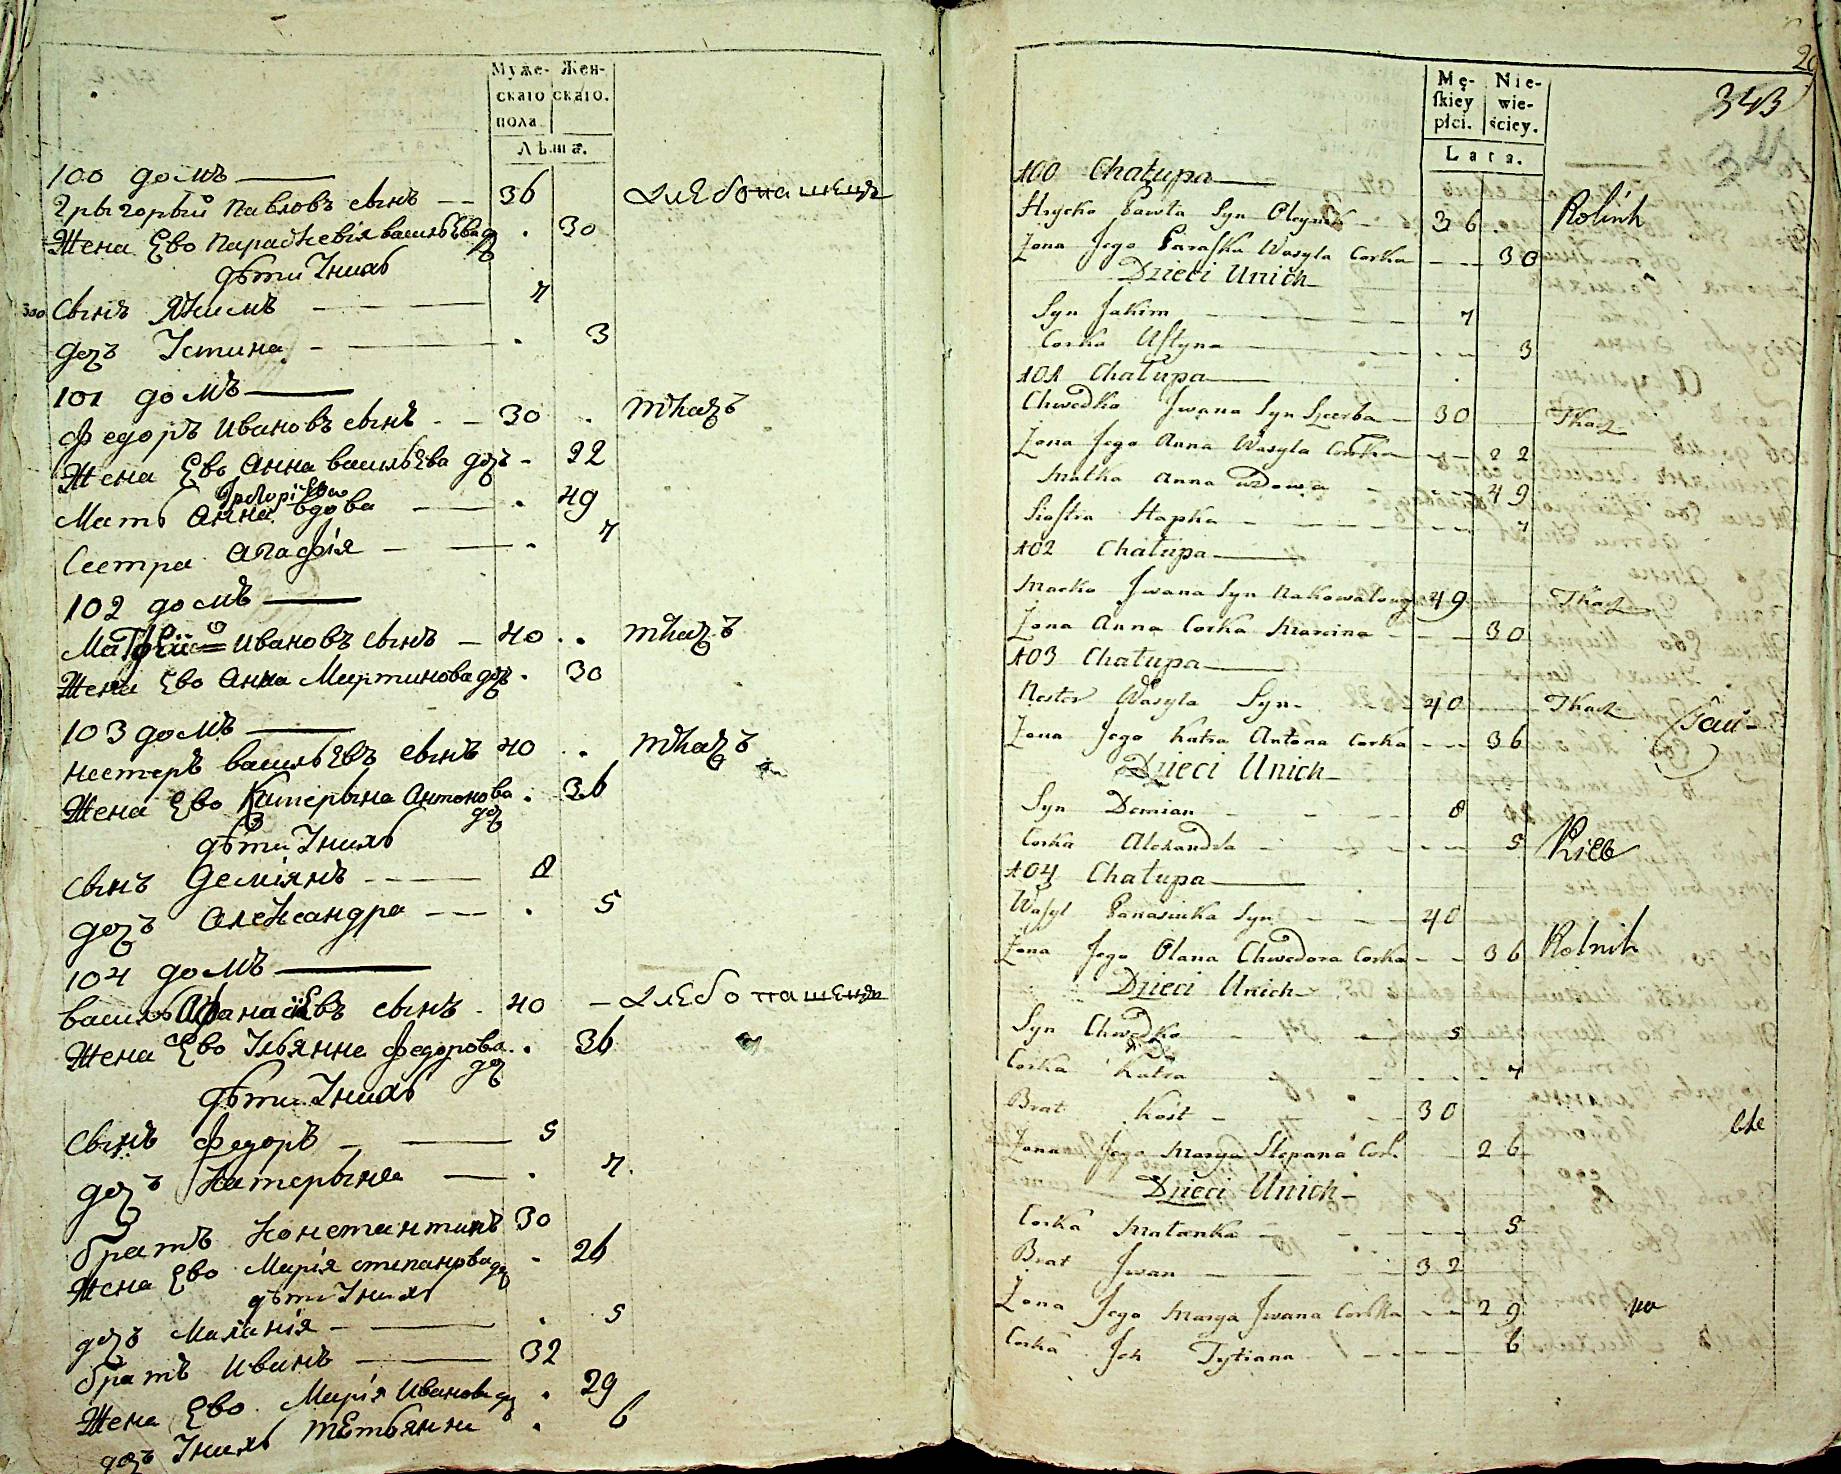 Муже- Жен-
скаго скаго.
пола
Лѣта.
100 домъ
Грыгорый Павловъ сынъ 36 хлебопашецъ
Жена Ево Параскевія васильЕва дочь 30
дѣти Унихъ
300 сынъ Якимъ 7
дочъ Устина 3
101 домъ
Федоръ Ивановъ сынъ 30 ткачъ
Жена Ево Анна васильЕва дочъ 22
Мать Анна вдова 49
Сестра Агафія 7
102 домъ
Матфей Ивановъ сынъ 40 ткачъ
Жена Ево Анна Мартинова дочъ 30
103 домъ
Нестеръ васильЕвъ сынъ 40 ткачъ
Жена Ево Катерына Антонова дочъ 36
дѣти Унихъ
сынъ Деміянъ 8
дочъ Александра 5
104 домъ
василь Афанасіевъ сынъ 40 хлебопашецъ
Жена Ево Ульянна Федорова дочъ 36
дѣти Унихъ
сынъ Федоръ 5
дочъ Катерына 7
братъ Константинъ 30
Жена Ево Марія степанова дочъ 26
дѣти Унихъ
дочъ Маланія 5
братъ Иванъ 32
Жена Ево Марія Иванова дочъ 29
дочъ Унихъ 6
Mę- Nie-
skiey wie-
płci. ściey.
Lata.
343
100 Chałupa
Hrycko Pawła Syn 36 Rolnik
Zona Jego Paraska Wasyla Corka 30
Dzieci Unich
Syn Jakim 7
Corka Ustyna 3
101 Chałupa
Chwedko Jwana Syn Szczerba 30 Tkacz
Zona Jego Anna Wasyla Corka 22
Matka Anna wdowa 49
Siostra Hapka 7
102 Chałupa
Macko Jwana Syn 49 Tkacz
Zona Anna Corka Marcina 30
103 Chałupa
Nester Wasyla Syn 40 Tkacz
Zona Jego Katra Antona Corka 36
Dzieci Unich
Syn Demian 8
Corka Alexandra 5
104 Chałupa
Wasyl Panasiuka Syn 40
Zona Jego Olana Chwedora Corka 36 Rolnik
Dzieci Unich
Syn Chwedko 5
Corka Katra 7
Brat Kost 30
Zona Jego Marya Stepana Cor. 26
Dzieci Unich
Corka Małanka 5
Brat Jwan 32
Zona Jego Marya Jwana Corka 29
Corka Jch Tytiana 6